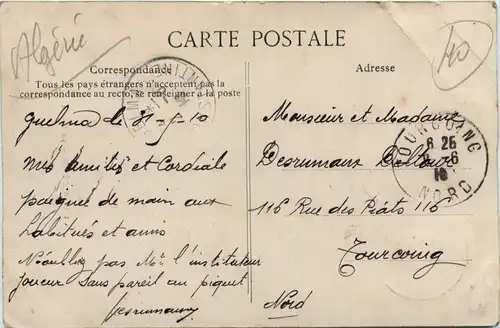 Algérie
40
CARTE POSTALE
Correspondance
Tous les pays étrangers n'acceptent pas la
correspondance au recto, se renseigner à la poste
Guelma le 31-5-10
Mes amitiés et Cordiale
poignée de main aux
habitués et amis
N'oubliez pas Mr l'instituteur
joueur sans pareil au piquet
Desrumaux
Adresse
Monsieur et Madame
Desrumaux
116 Rue des Piats 116
Tourcoing
Nord
TOURCOING
NORD